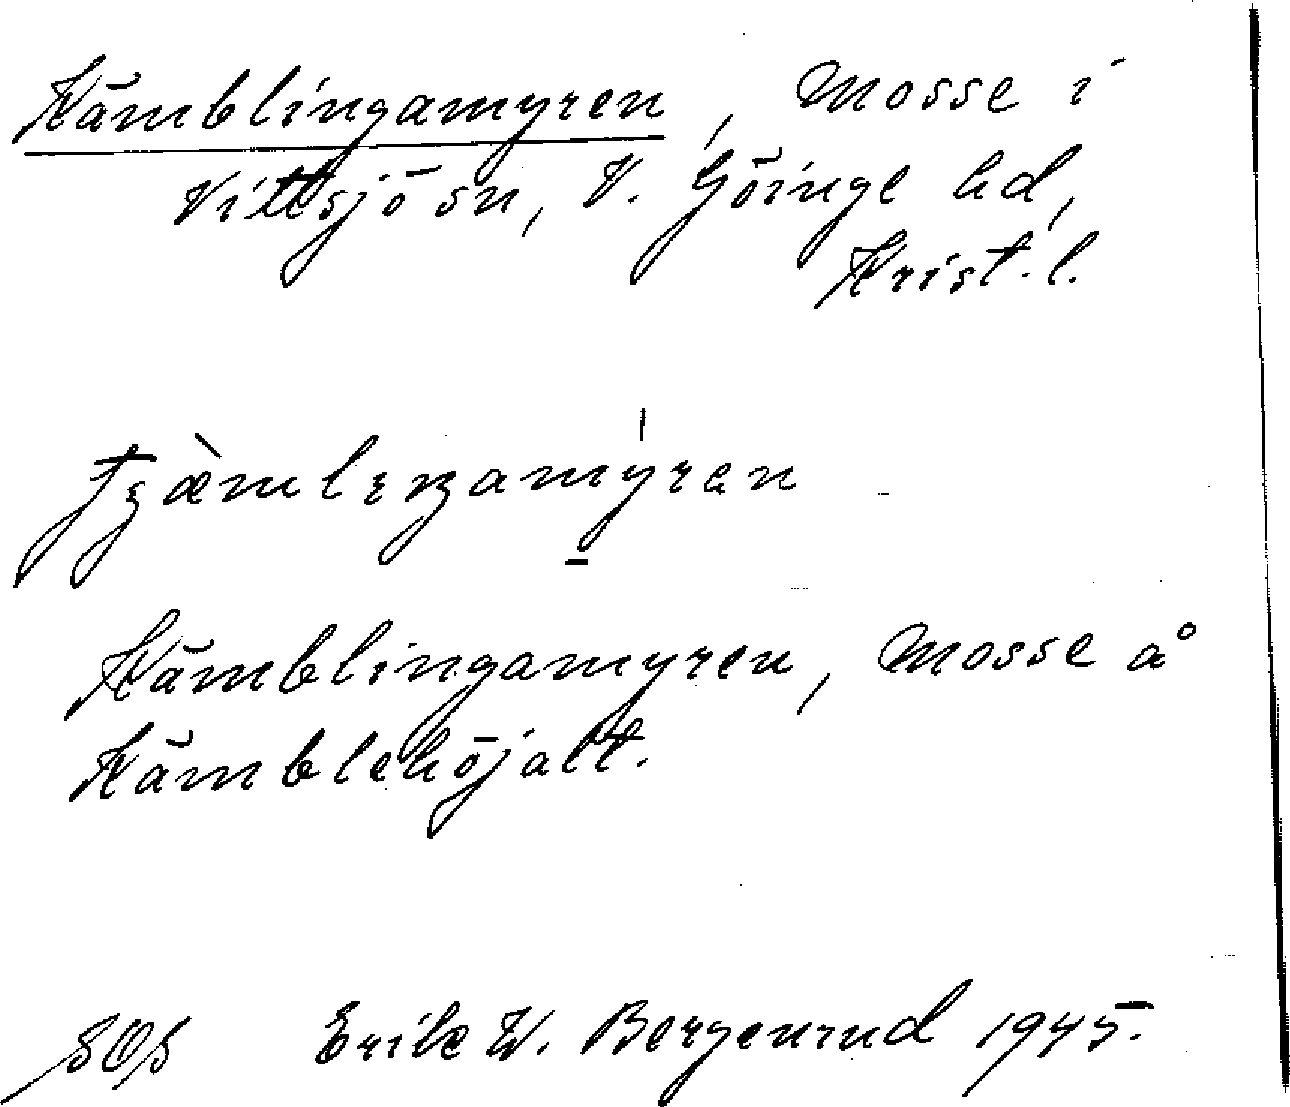 Kämblingamyren, Mosse i
Vittsjö sn, V. Göinge hd,
Krist. l.
Kämblingamyren, Mosse å
Kämblehöjatt.
SOS Erik W. Bergenrud 1945.